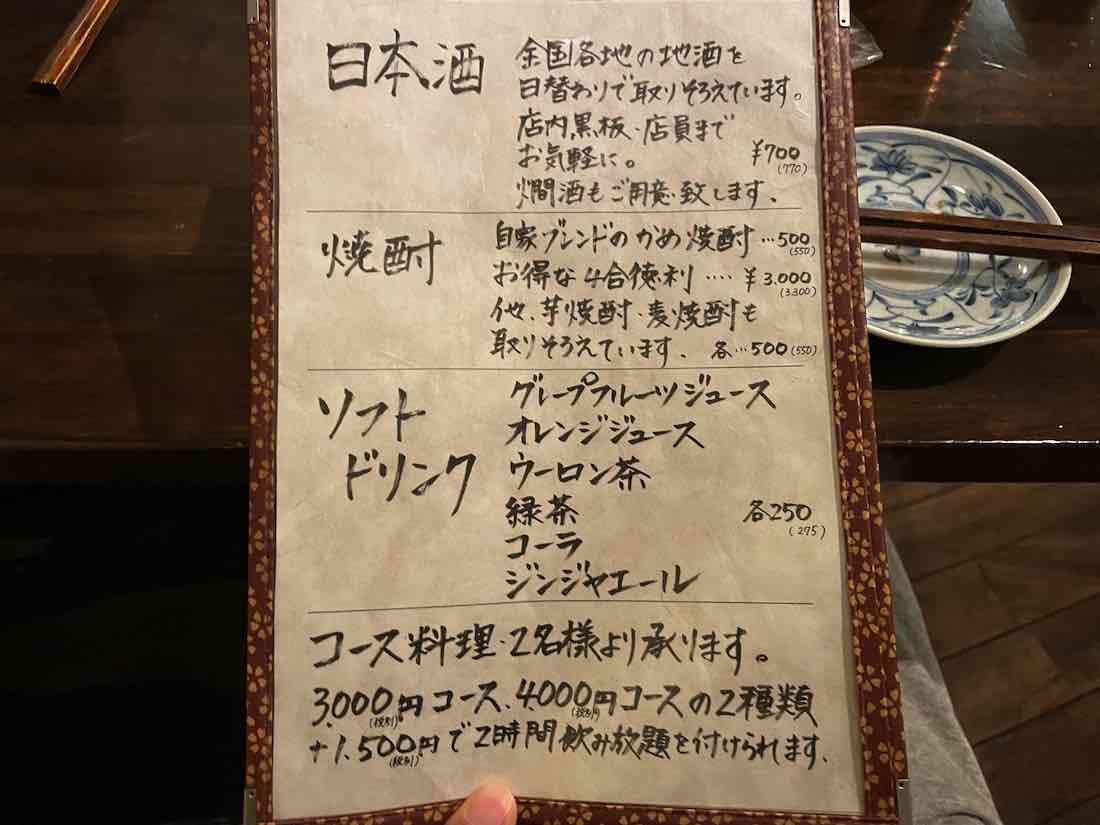 日本酒
全国各地の地酒を
日替わりで取りそろえています。
店内黒板・店員まで
お気軽に。 ¥700
(770)
燗酒もご用意致します。
焼酎
自家ブレンドのかめ焼酎…500
(550)
お得な4合徳利…. ¥3.000
(3.300)
他、芋焼酎・麦焼酎も
取りそろえています。 各…500(550)
ソフト
ドリンク
グレープフルーツジュース
オレンジジュース
ウーロン茶
緑茶 各250
(275)
コーラ
ジンジャエール
コース料理・2名様より承ります。
3.000円コース、4000円コースの2種類
(税別) (税別)
+1.500円で2時間飲み放題を付けられます。
(税別)